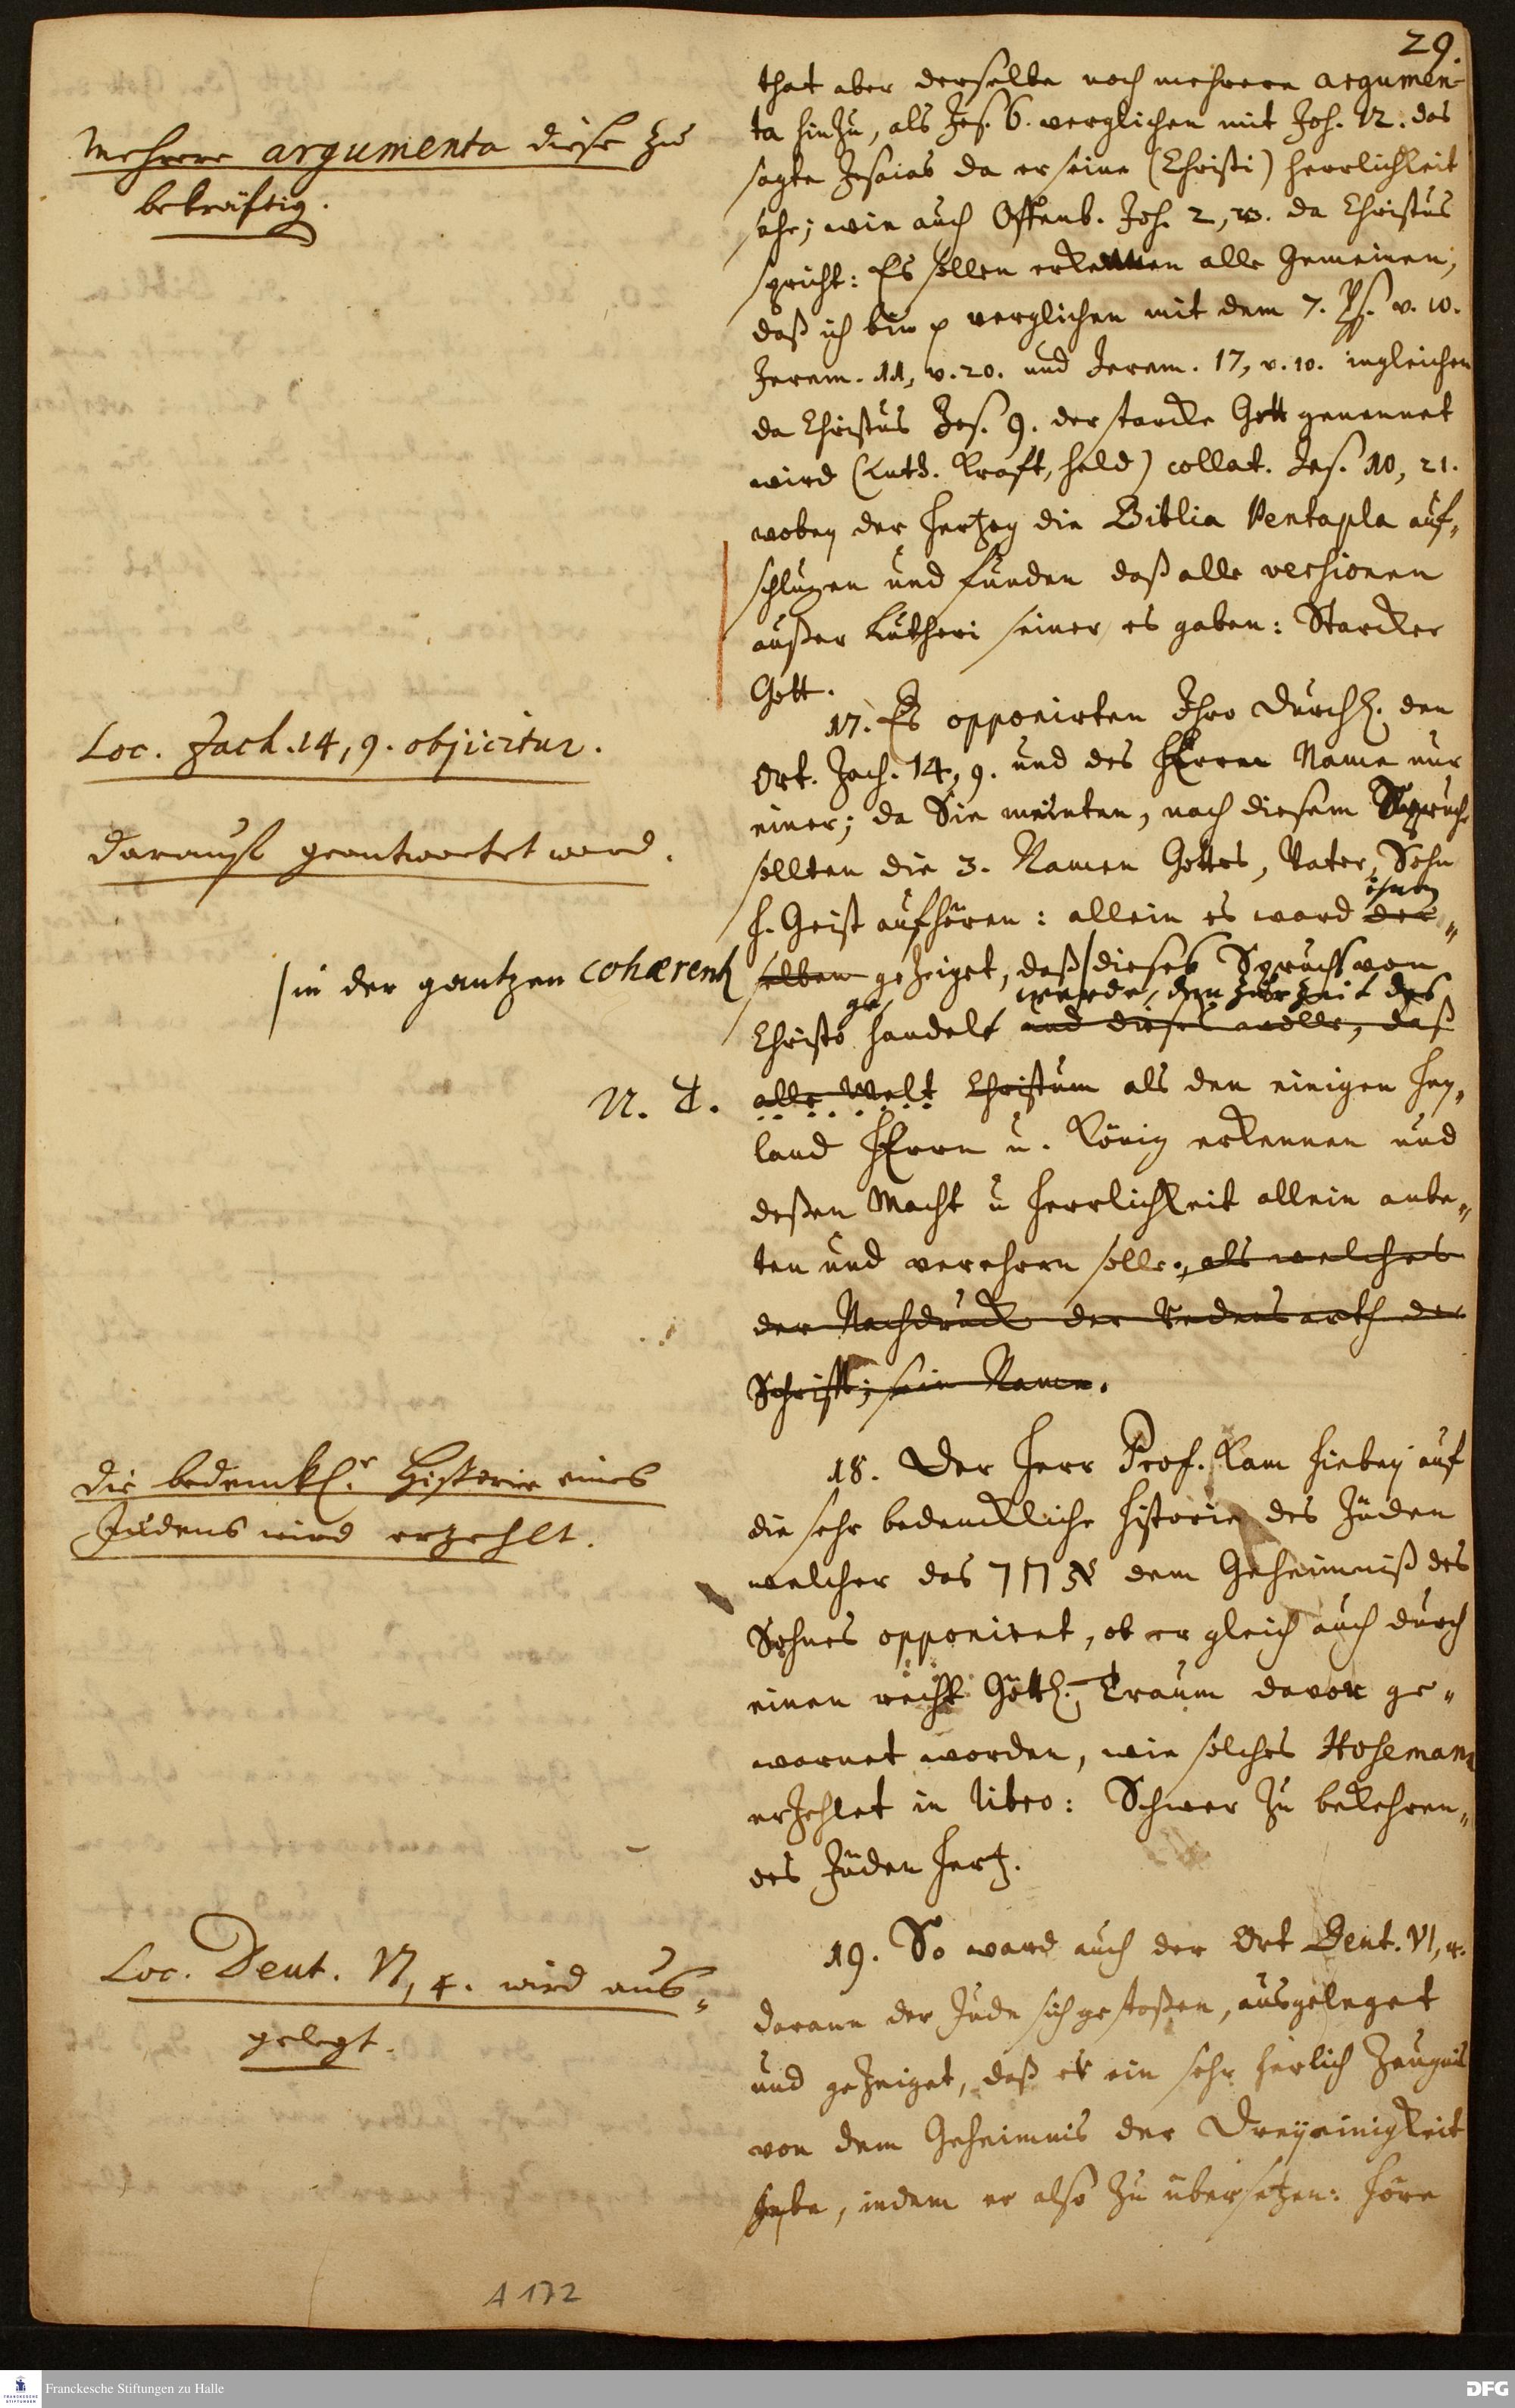 29.
that aber derselbe noch mehrere argumen-
ta hinzu, als Jes. 6. verglichen mit Joh. 12. das
sagte Jesaias da er seine (Christi) Herrlichkeit
sahe; wie auch Offenb. Joh. 2, 23. da Christus
spricht: Es sollen erkennen alle Gemeinen,
daß ich bin p verglichen mit dem 7. Ps. v. 10.
Jerem. 11, v. 20. und Jerem. 17, v. 10. ingleichen
da Christus Jes. 9. der starcke Gott genennet
wird (Luth. Krafft, Held) collat. Jes. 10, 21.
wobey der Hertzog die Biblia Pentapla auf-
schlugen und funden daß alle versionen
außer Lutheri seiner es gaben: Starcker
Gott.
Mehrere argumenta diese zu
bekräftig.
17. Es opponirten Ihro Durchl. den
Ort. Zach. 14, 9. und des HErrn Name nur
einer; da Sie meinten, nach diesem Spruch
sollten die 3. Namen Gottes, Vater, Sohn
H. Geist aufhören: allein es ward der-
ihnen
selben gezeiget, daß/dieses Spruchs von
werde, den zur Zeit des
Christo gehandelt und dieses wolle, daß
alle Welt Christum als den einigen Hey-
land HErrn u. König erkennen und
deßen Macht u Herrlichkeit allein anbe-
ten und verehren solle, als welches
der Nachdruck der Redensarth der
Schrifft; sein Name.
Loc. Zach. 14, 9. objicitur.
darauf geantwortet werd.
/in der gantzen cohærentz
N. T.
18. Der Herr Prof. kam hiebey auf
die sehr bedenckliche Historie des Jüden
welcher das אחד dem Geheimniß des
Sohnes opponiret, ob er gleich auch durch
einen recht Göttl. Traum davor ge-
warnet worden, wie solches Hosemann
erzehlet in libro: Schwer zu bekehren-
des Jüden Hertz.
Die bedenkl. Historie eines
Judens wird erzehlt.
19. So ward auch der Ort Deut. VI, 4.
daran der Jude sich gestoßen, ausgeleget
und gezeiget, daß er ein sehr herlich Zeugnis
von dem Geheimnis der Dreyeinigkeit
habe, indem er also zu übersetzen: Höre
Loc. Deut. VI, 4. wird aus-
gelegt.
A 172
Franckesche Stiftungen zu Halle
DFG